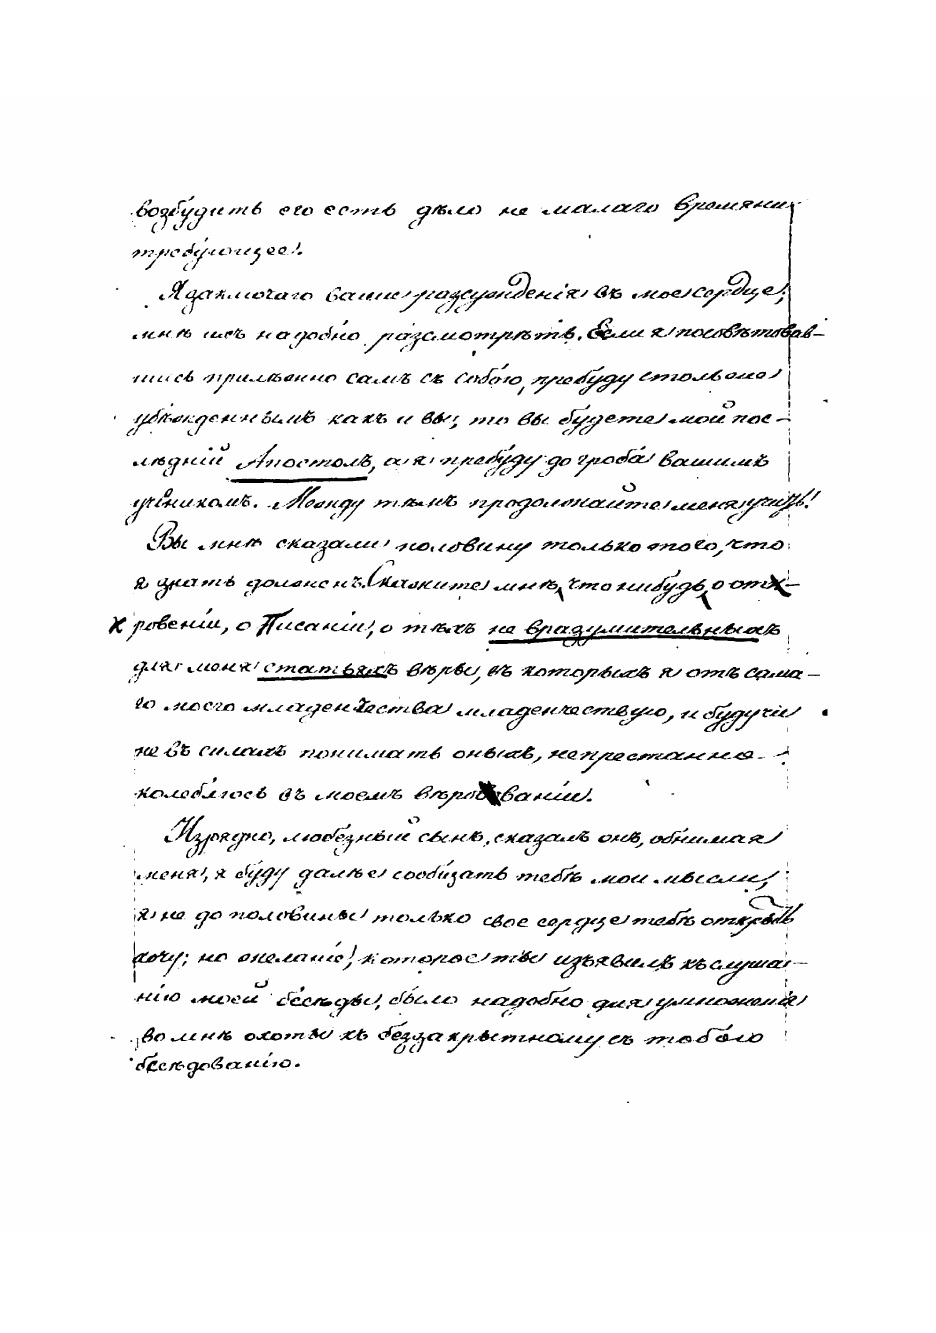 возбудить его есть дѣло не малаго времяни
требующее!.
Я заключаю ваше разсужденіе въ мое сердце;
мнѣ ихъ надобно разсмотрѣть. Если я посовѣтовав-
шись прилѣжно самъ съ собою, пребуду столь же
убѣжденнымъ какъ и вы; то вы будете мой пос-
лѣдній Апостолъ, а я пребуду до гроба вашимъ
ученикомъ. Между тѣмъ продолжайте меня учить!
Вы мнѣ сказали половину только того, что
я знать долженъ. Скажите мнѣ, что нибудь, о отк-
ровеніи, о Писаніи, о тѣхъ не вразумительныхъ
для меня статьяхъ вѣры, въ которыхъ я отъ сама-
го моего младенчества младенчествую, и будучи
не въ силахъ понимать оныхъ, непрестанно
колеблюсь въ моемъ вѣрованіи.
Изрядно, любезный сынъ, сказалъ онъ, обнимая
меня, я буду далѣе сообщать тебѣ мои мысли,
я не до половины только свое сердце тебѣ открыть
хочу; но желаніе, которое ты изъявилъ къ слуша-
нію моей бесѣды, было надобно для умноженія
во мнѣ охоты къ беззакрытному съ тобою
бесѣдованію.